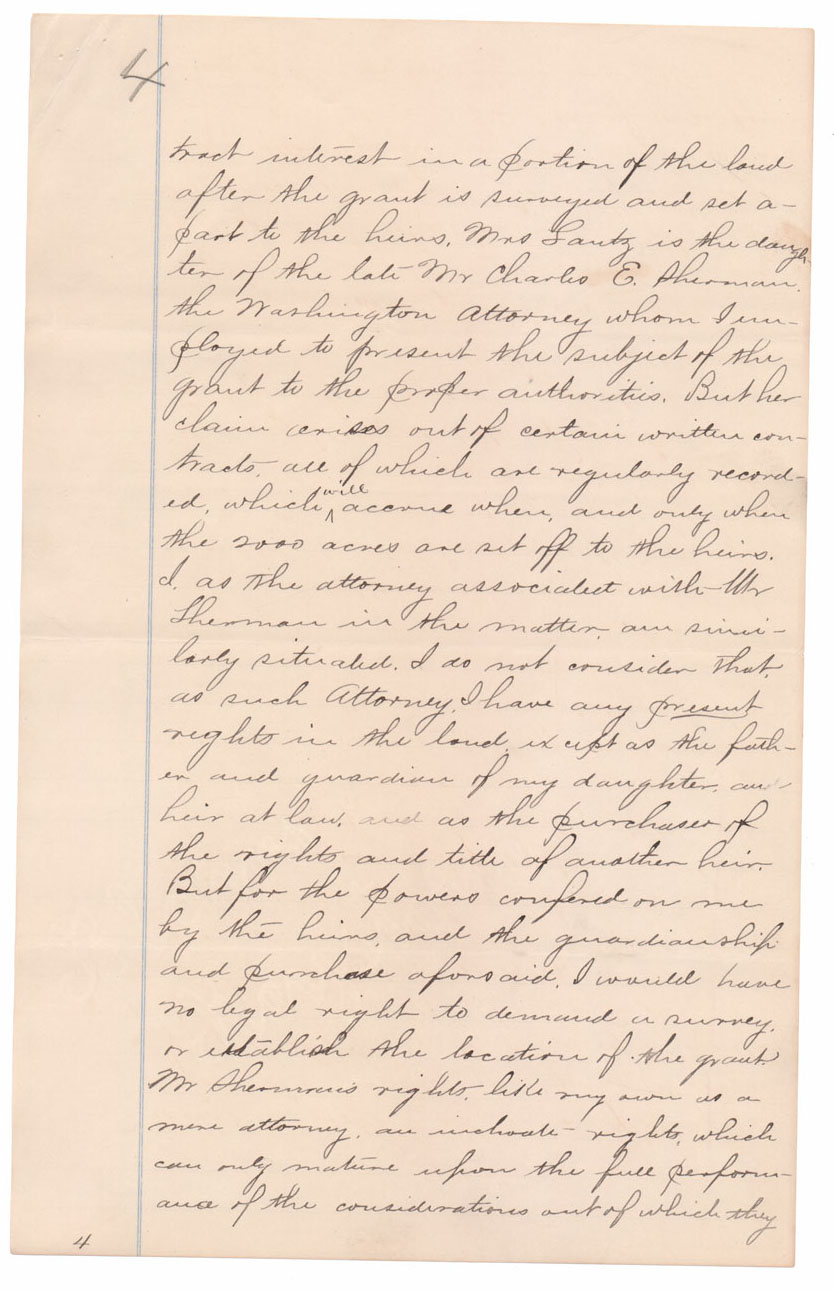 4
tract interest in a portion of the land
after the grant is surveyed and set a-
part to the heirs. Mrs Lantz is the daugh-
ter of the late Mr Charles E. Sherman.
the Washington Attorney whom I em-
ployed to present the subject of the
grant to the proper authorities. But her
claim arises out of certain written con-
tracts, all of which are regularly record-
ed, which will accrue when, and only when
the 2000 acres are set off to the heirs.
I, as the attorney associated with Mr
Sherman in the matter, am simi-
larly situated. I do not consider that,
as such Attorney, I have any present
rights in the land, except as the fath-
er and guardian of my daughter, an
heir at law, and as the purchaser of
the rights and title of another heir.
But for the powers confered on me
by the heirs, and the guardianship
and purchase aforsaid, I would have
no legal right to demand a survey,
or establish the location of the grant.
Mr Sherman's rights, like my own as a
mere attorney, are inchoate rights, which
can only mature upon the full perform-
ance of the considerations out of which they
4